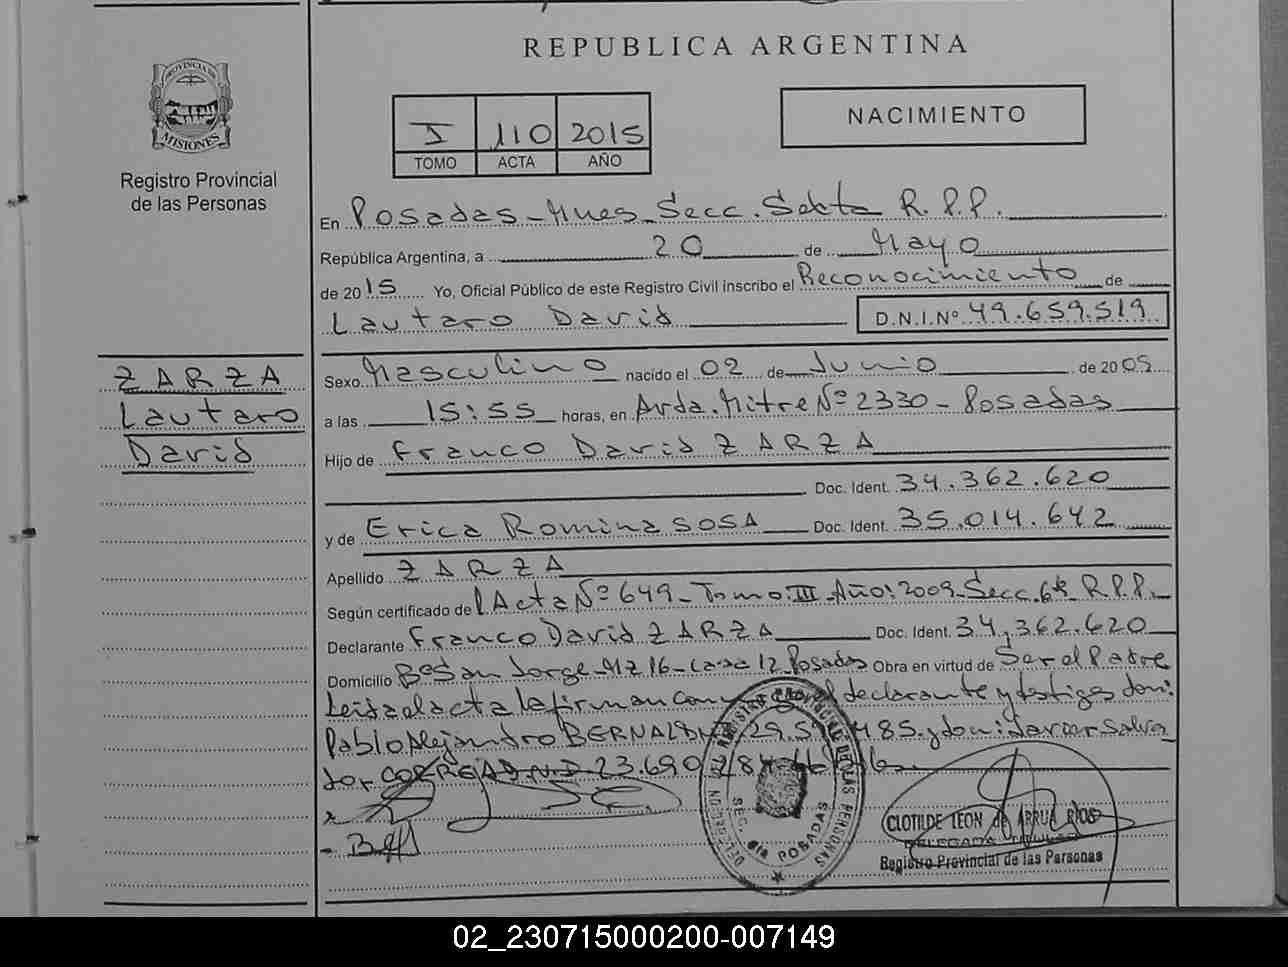 REPUBLICA ARGENTINA
PROVINCIA DE
MISIONES
Registro Provincial
de las Personas
I 110 2015
TOMO ACTA AÑO
NACIMIENTO
En Posadas-Mnes-Secc. Sexta R.P.P.
República Argentina, a 20 de Mayo
de 2015 Yo, Oficial Público de este Registro Civil inscribo el Reconocimiento de
Lautaro David D.N.I.Nº 49.659.519
ZARZA
Lautaro
David
Sexo Masculino nacido el 02 de Junio de 2009
a las 15:55 horas, en Avda. Mitre Nº 2330 - Posadas
Hijo de Franco David ZARZA
Doc. Ident. 34.362.620
y de Erica Romina SOSA Doc. Ident. 35.014.642
Apellido ZARZA
Según certificado de Acta Nº 649-Tomo:III-Año:2009-Secc. 6ta R.P.P.
Declarante Franco David ZARZA Doc. Ident. 34.362.620
Domicilio Bº San Jorge-Mz 16-casa 12-Posadas Obra en virtud de Ser el Padre
Leida el acta la firman conmigo el declarante y testigos don:
Pablo Alejandro 485.y don: Javier Salva
dor 23.690.284
REGISTRO PROVINCIAL DE LAS PERSONAS
DELEGACION
SEC. 6ta POSADAS
CLOTILDE LEON de ARRUA RIOS
DELEGADA TITULAR
Registro Provincial de las Personas
02_230715000200-007149